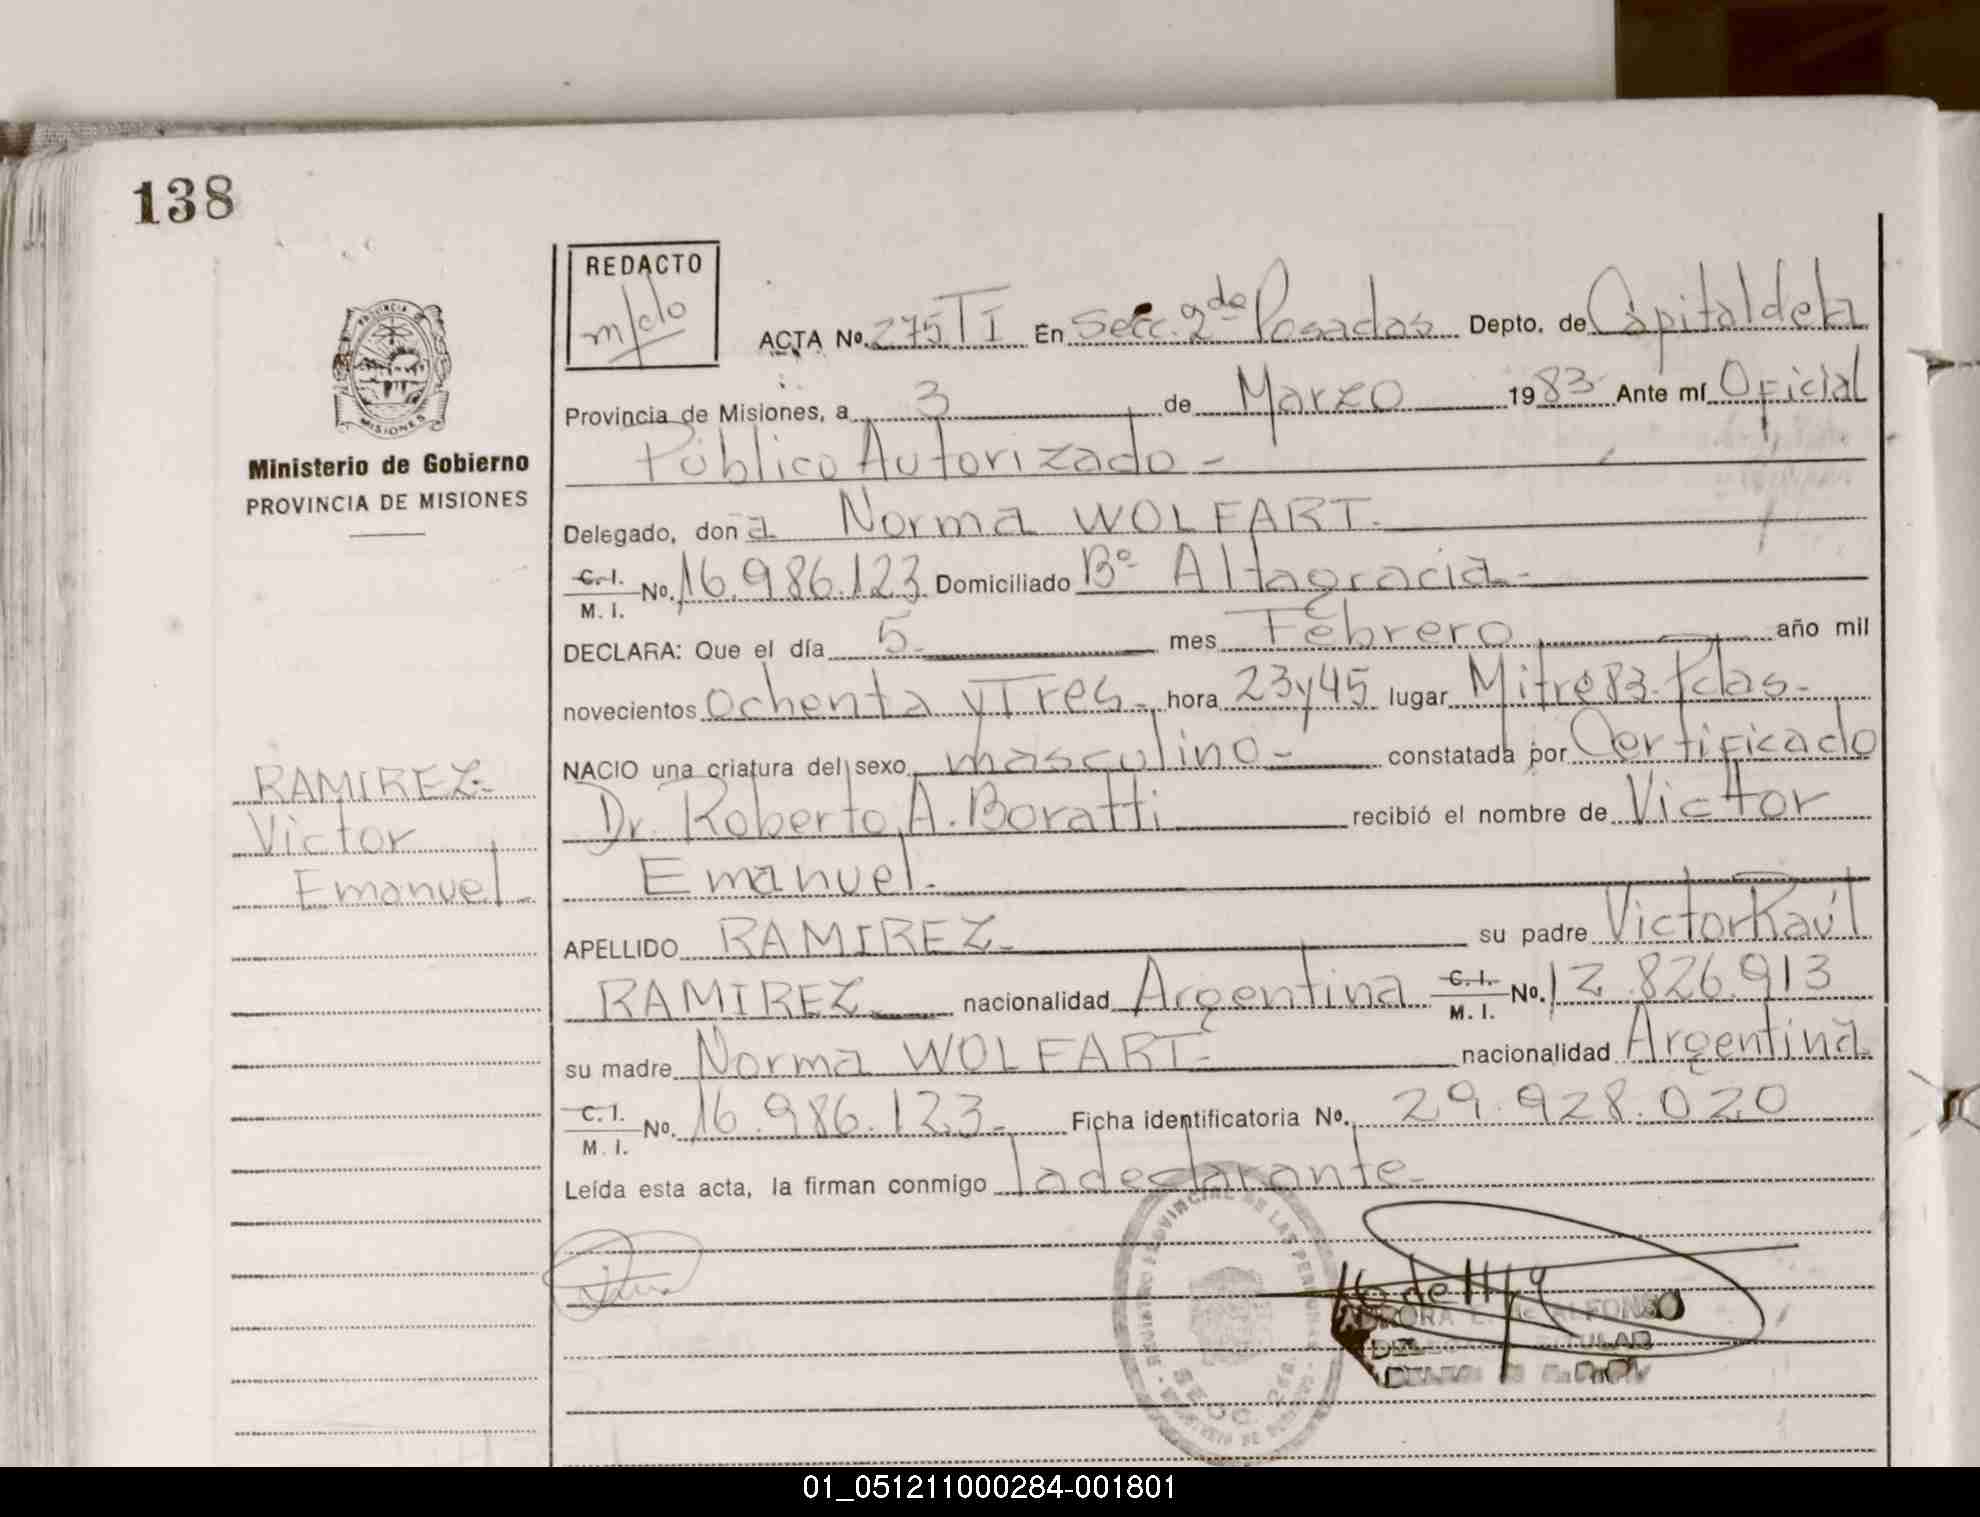 138
REDACTO
ACTA Nº. 275 TI En Secc. 2da Posadas Depto. de Capital de la
Provincia de Misiones, a 3 de Marzo 1983 Ante mí Oficial
Público Autorizado -
Ministerio de Gobierno
PROVINCIA DE MISIONES
Delegado, doña Norma WOLFART.
C. I. / M. I. Nº. 16.986.123 Domiciliado Bº Altagracia -
DECLARA: Que el día 5 mes Febrero año mil
novecientos ochenta y Tres - hora 23 y 45 lugar Mitre 83 - Pdas -
NACIO una criatura del sexo masculino - constatada por Certificado
Dr. Roberto A. Boratti recibió el nombre de Victor
Emanuel -
RAMIREZ -
Victor
Emanuel -
APELLIDO RAMIREZ - su padre Victor Raúl
RAMIREZ nacionalidad Argentina C. I. / M. I. Nº. 12.826.913
su madre Norma WOLFART - nacionalidad Argentina
C. I. / M. I. Nº. 16.986.123 - Ficha identificatoria Nº. 29.928.020
Leída esta acta, la firman conmigo la declarante -
REGISTRO PROVINCIAL DE LAS PERSONAS
01_051211000284-001801